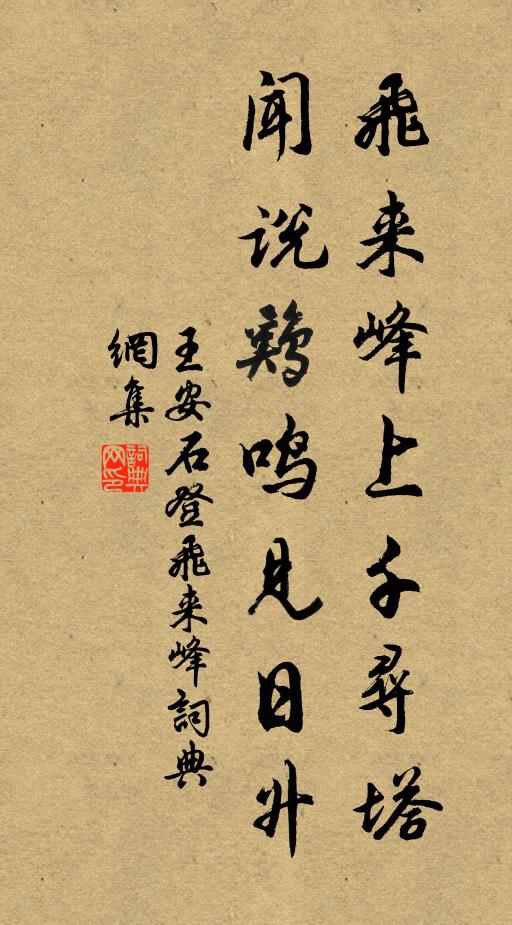 飛来峰上千尋塔
闻说鷄鸣見日升
王安石登飛来峰詞典
網集
詞典
网印